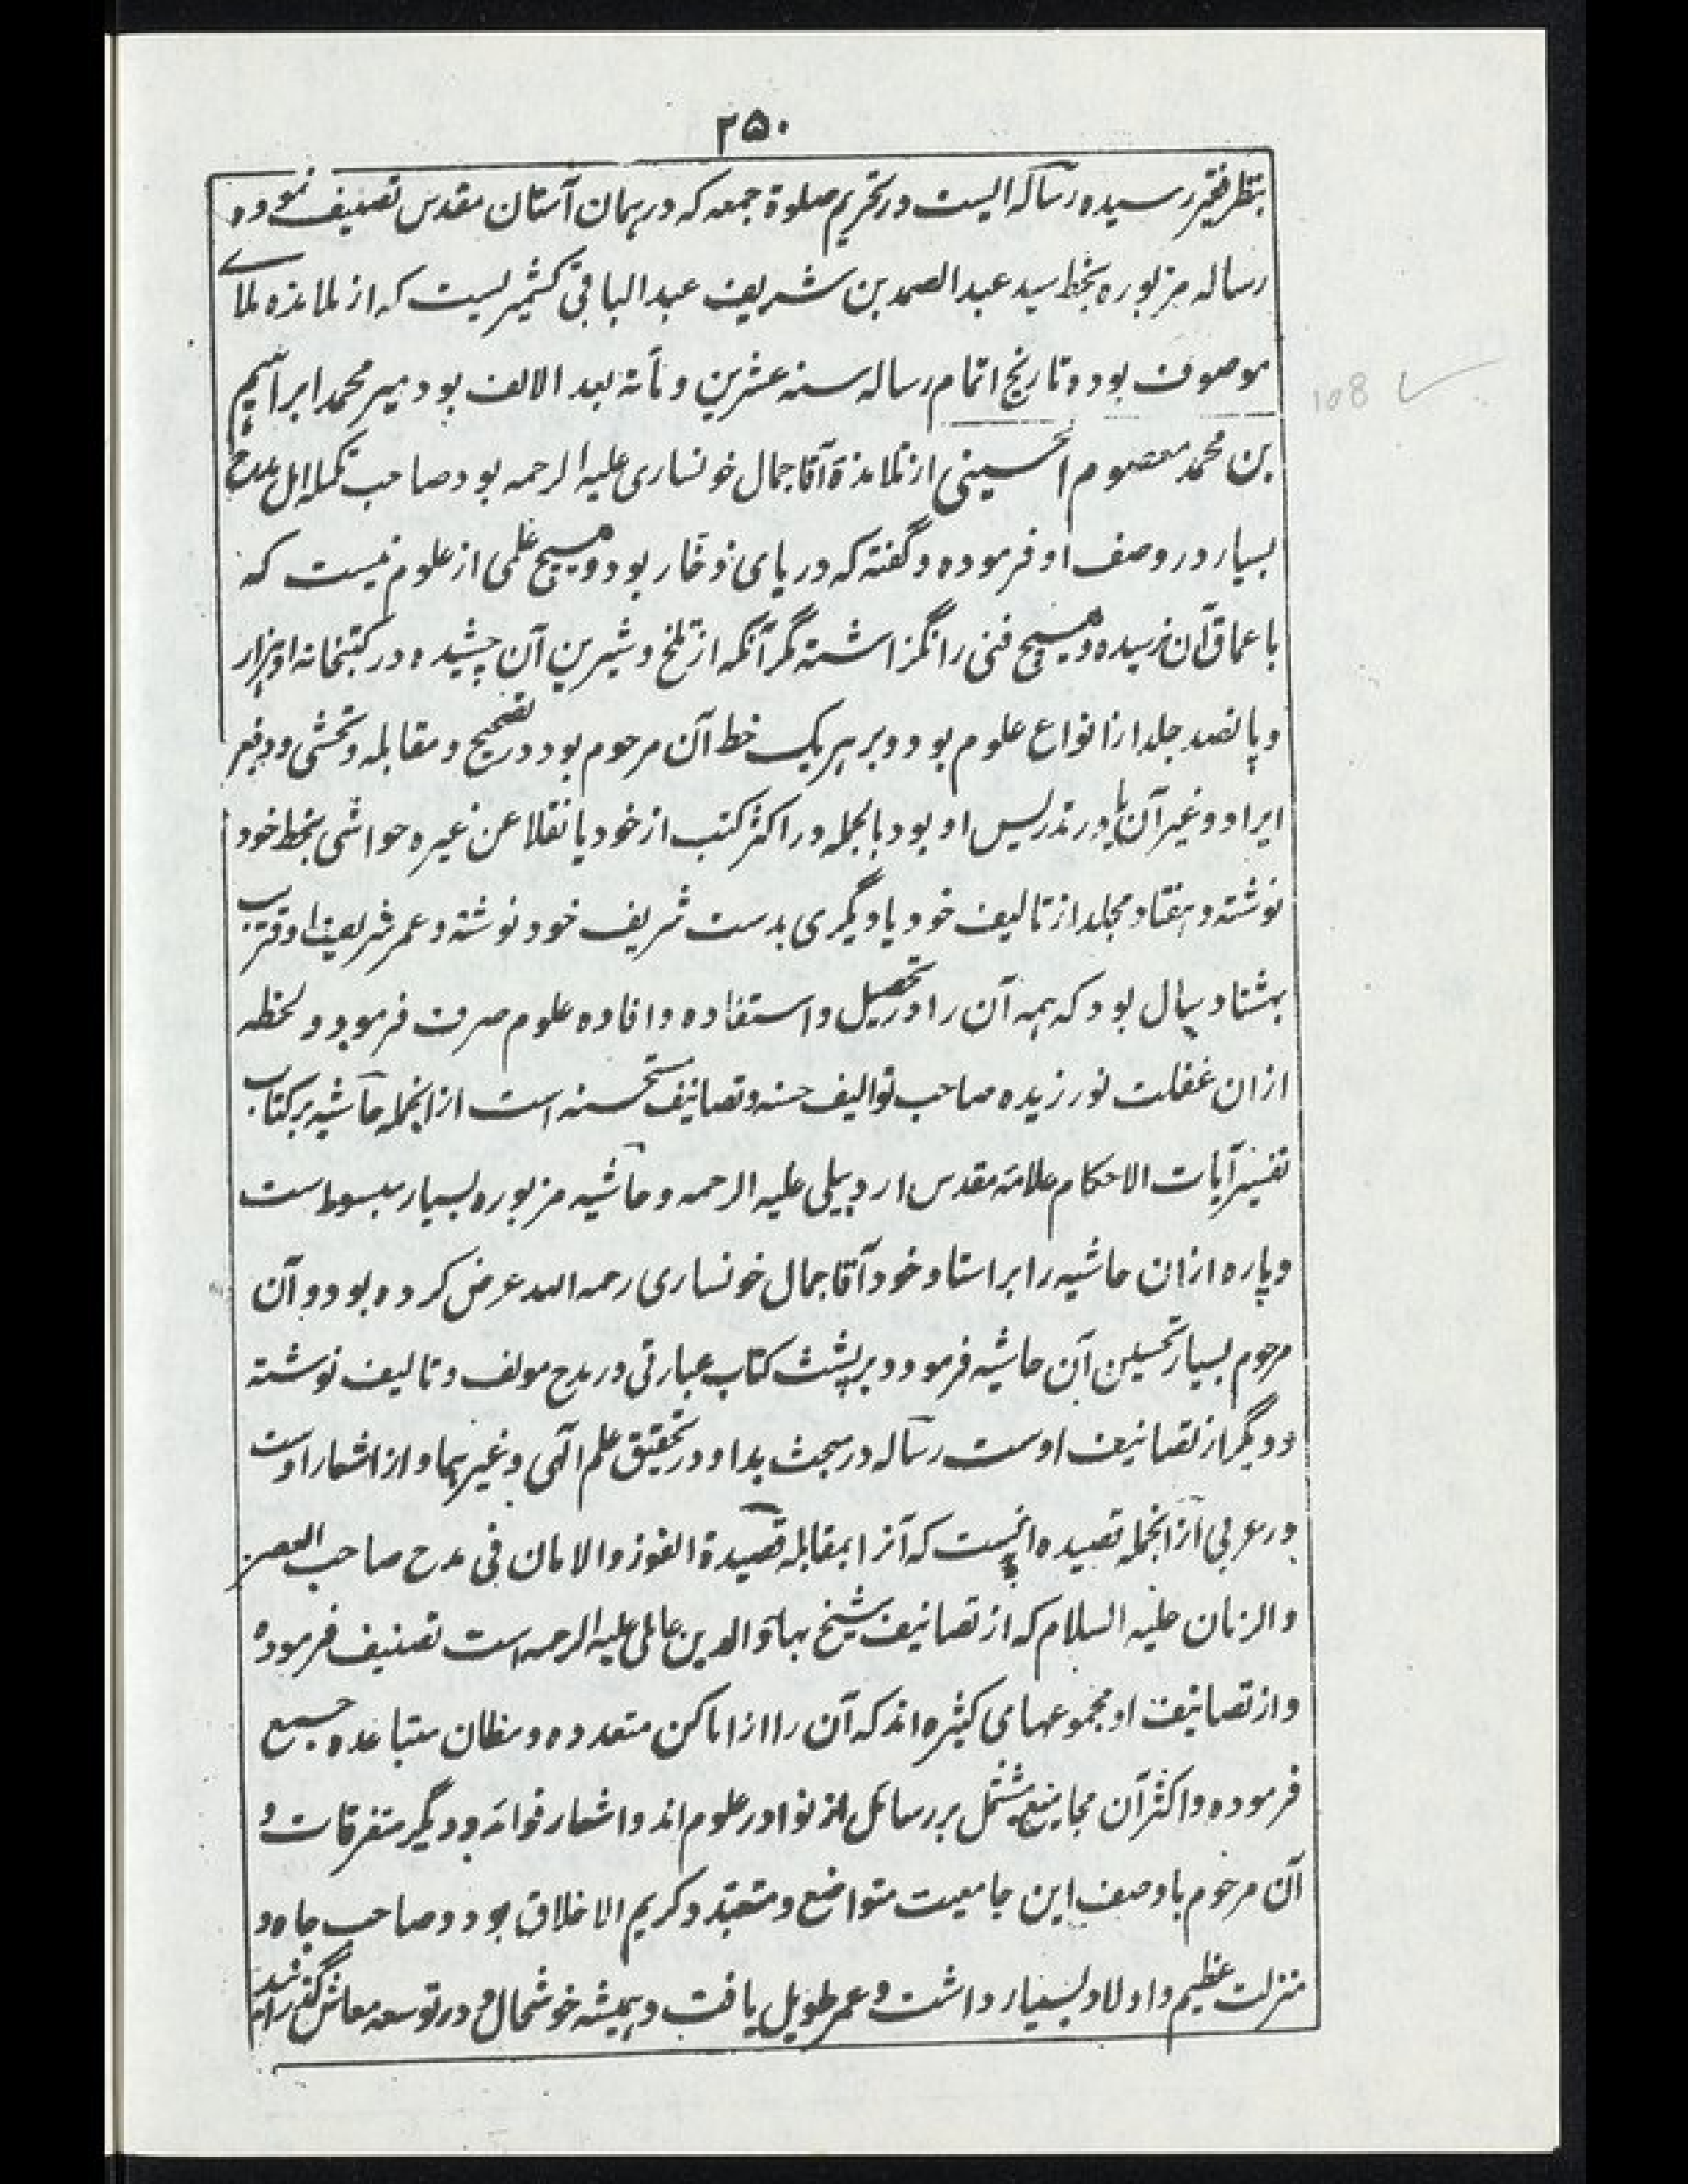 ۲۵۰
بنظر فقیر رسیده رساله ایست در تحریم صلوة جمعه که در همان آستان مقدس تصنیف نموده
رساله مزبوره بخط سید عبد الصمد بن شریف عبد الباقی کشمیریست که از تلامذه ملای
موصوف بود و تاریخ اتمام رساله سنه عشرین و مأته بعد الالف بود میر محمد ابراهیم
بن محمد معصوم الحسینی از تلامذۀ آقا جمال خونساری علیه الرحمه بود صاحب تکمله امل مدح
بسیار در وصف او فرموده و گفته که دریای ذخار بود و هیچ علمی از علوم نیست که
باعماق آن نرسیده و هیچ فنی را نگزاشته مگر آنکه از تلخ و شیرین آن چشیده در کتبخانه او هزار
و پانصد جلد از انواع علوم بود و بر هر یک خط آن مرحوم بود در تصحیح و مقابله و تحشی و دفع
ایراد و غیر آن یا در تدریس او بود بالجمله در اکثر کتب از خود یا نقلا عن غیره حواشی بخط خود
نوشته و هفتاد مجلد از تالیف خود یا دیگری بدست شریف خود نوشته و عمر شریف او قریب
بهشتاد سال بود که همه آن را در تحصیل و استفاده و افاده علوم صرف فرمود و لحظه
ازان غفلت نورزیده صاحب توالیف حسنه و تصانیف مستحسنه است ازانجمله حاشیه بر کتاب
تفسیر آیات الاحکام علامۀ مقدس اردبیلی علیه الرحمه و حاشیه مزبوره بسیار مبسوط است
و پاره ازان حاشیه را بر استاد خود آقا جمال خونساری رحمه الله عرض کرده بود و آن
مرحوم بسیار تحسین آن حاشیه فرمود و بر پشت کتاب عبارتی در مدح مولف و تالیف نوشته
و دیگر از تصانیف اوست رساله در مبحث بدا و در تحقیق علم الهی و غیرهما و از اشعار اوست
در عربی ازانجمله قصیده ایست که آنرا بمقابله قصیدة الفوز و الامان فی مدح صاحب العصر
و الزمان علیه السلام که از تصانیف شیخ بهاؤ الدین عاملی علیه الرحمه است تصنیف فرموده
و از تصانیف او مجموعهای کثیره اند که آن را از اماکن متعدده و مظان متباعده جمیع
فرموده و اکثر آن مجامیع مشتمل بر رسائل از نوادر علوم اند و اشعار فوائد و دیگر متفرقات و
آن مرحوم با وصف این جامعیت متواضع و متعبد و کریم الاخلاق بود و صاحب جاه و
منزلت عظیم و اولاد بسیار داشت و عمر طویل یافت و همیشه خوشحال و در توسعه معاش گذرانید
108